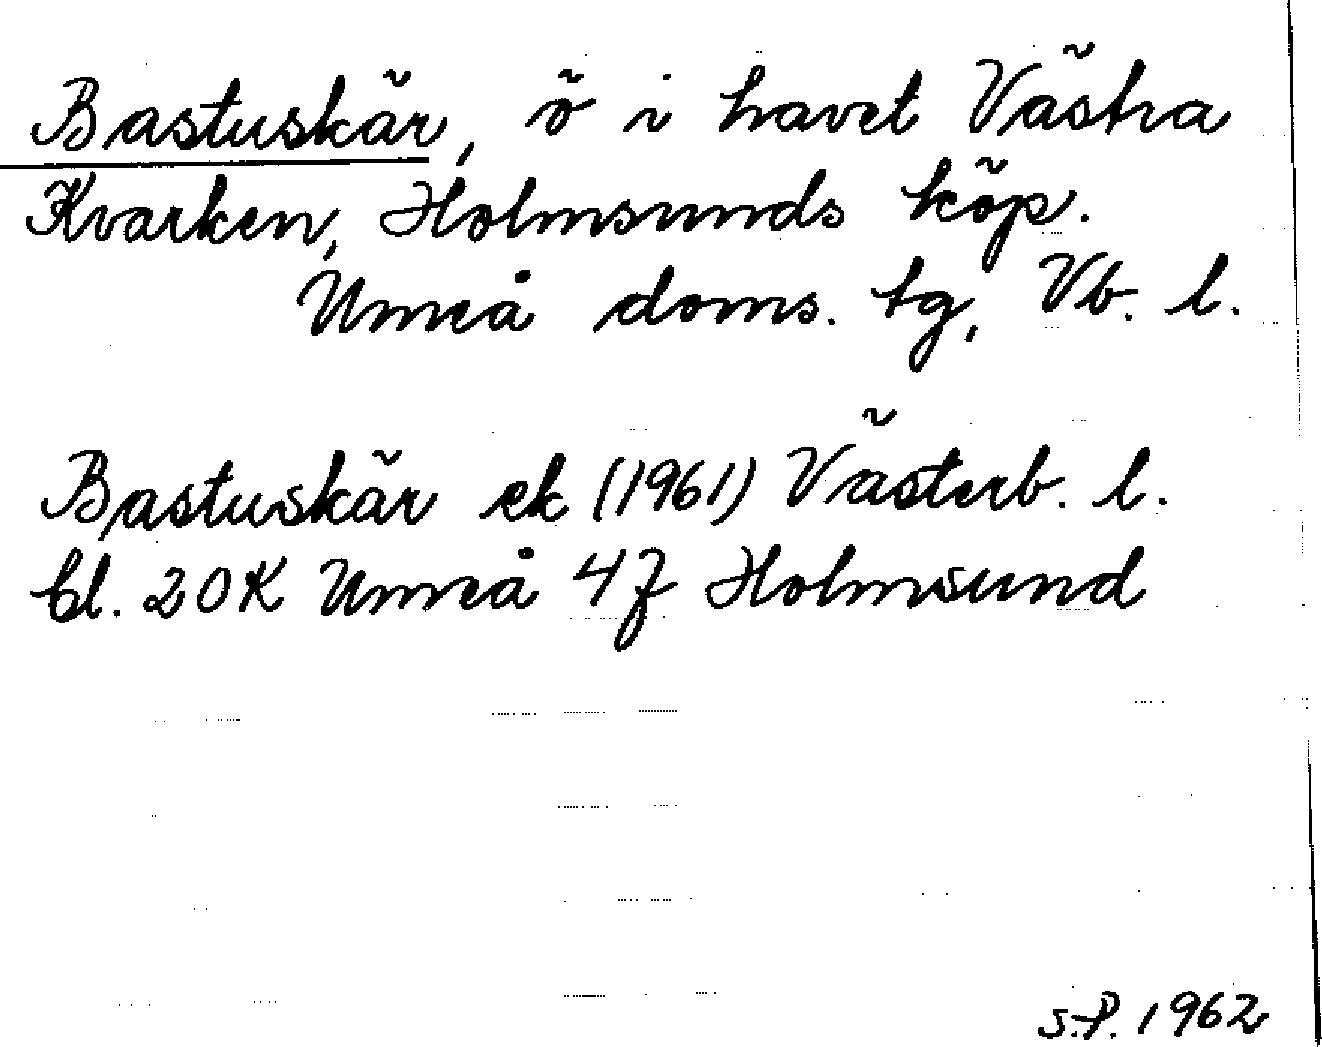 Bastuskär, ö i havet Västra
Kvarken, Holmsunds köp.
Umeå doms. tg, Vb. l.
Bastuskär ek (1961) Västerb. l.
bl. 20K Umeå 4f Holmsund
S.P. 1962